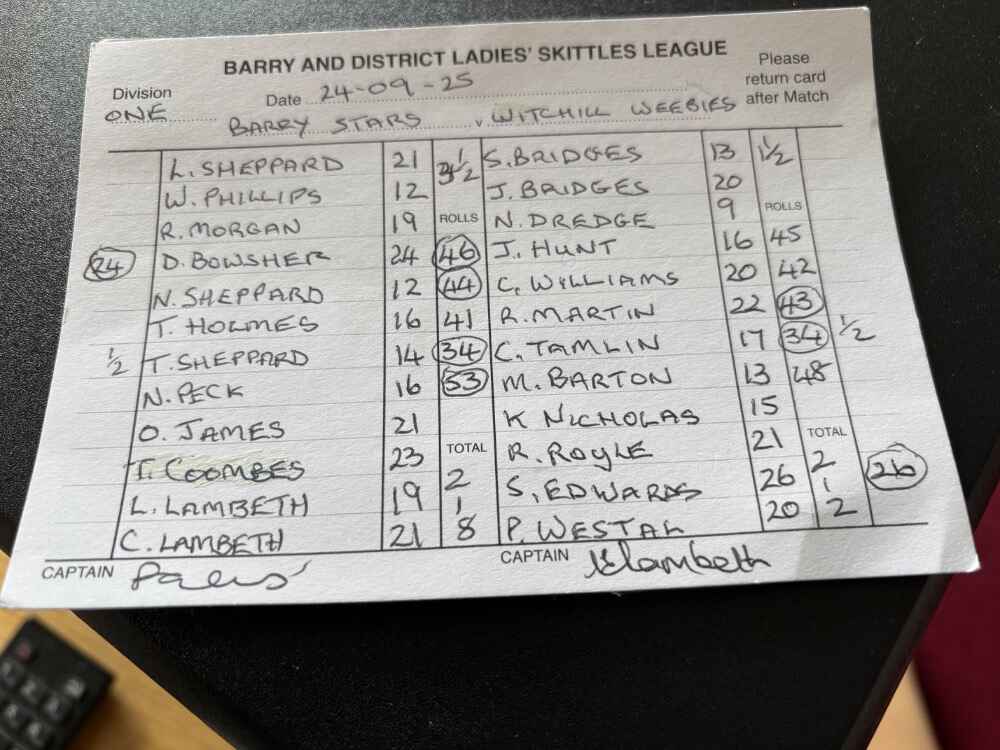 BARRY AND DISTRICT LADIES' SKITTLES LEAGUE
Please return card after Match
Division ONE
Date 24-09-25
BARRY STARS v WITCHILL WEEBIES
L. SHEPPARD 21 1/2 S. BRIDGES 13 1 1/2
W. PHILLIPS 12 J. BRIDGES 20
R. MORGAN 19 ROLLS N. DREDGE 9 ROLLS
24 D. BOWSHER 24 46 J. HUNT 16 45
N. SHEPPARD 12 44 C. WILLIAMS 20 42
T. HOLMES 16 41 R. MARTIN 22 43
1/2 T. SHEPPARD 14 34 C. TAMLIN 17 34 1/2
N. PECK 16 53 M. BARTON 13 48
O. JAMES 21 K NICHOLAS 15
T. COOMBES 23 TOTAL R. ROYLE 21 TOTAL
L. LAMBETH 19 2 S. EDWARDS 26 2 26
C. LAMBETH 21 1 8 P. WESTAH 20 1 2
CAPTAIN
CAPTAIN Lambeth